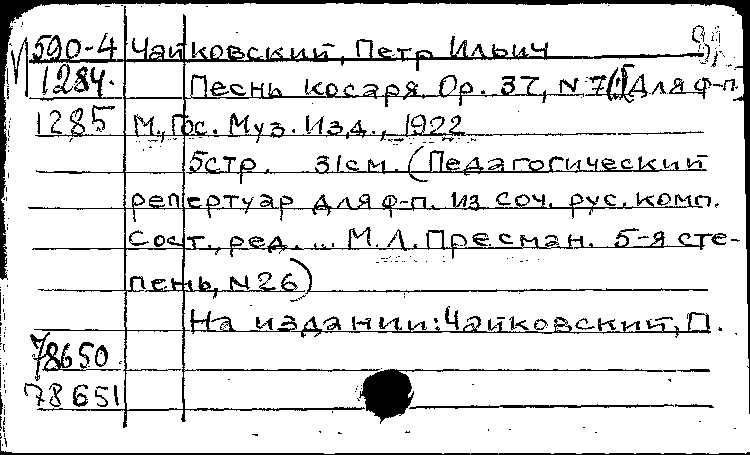 М 590-4 Чайковский, Петр Ильич
1284. Песнь косаря. Ор. 37, N 7 [Для ф-п.]
1285 М., Гос. Муз. Изд., 1922
5стр. 31см. (Педагогический
репертуар для ф-п. из соч. рус. комп.
Сост., ред. ... М.Л. Пресман. 5-я сте-
пень, N26)
На издании: Чайковский, П.
78650
78651